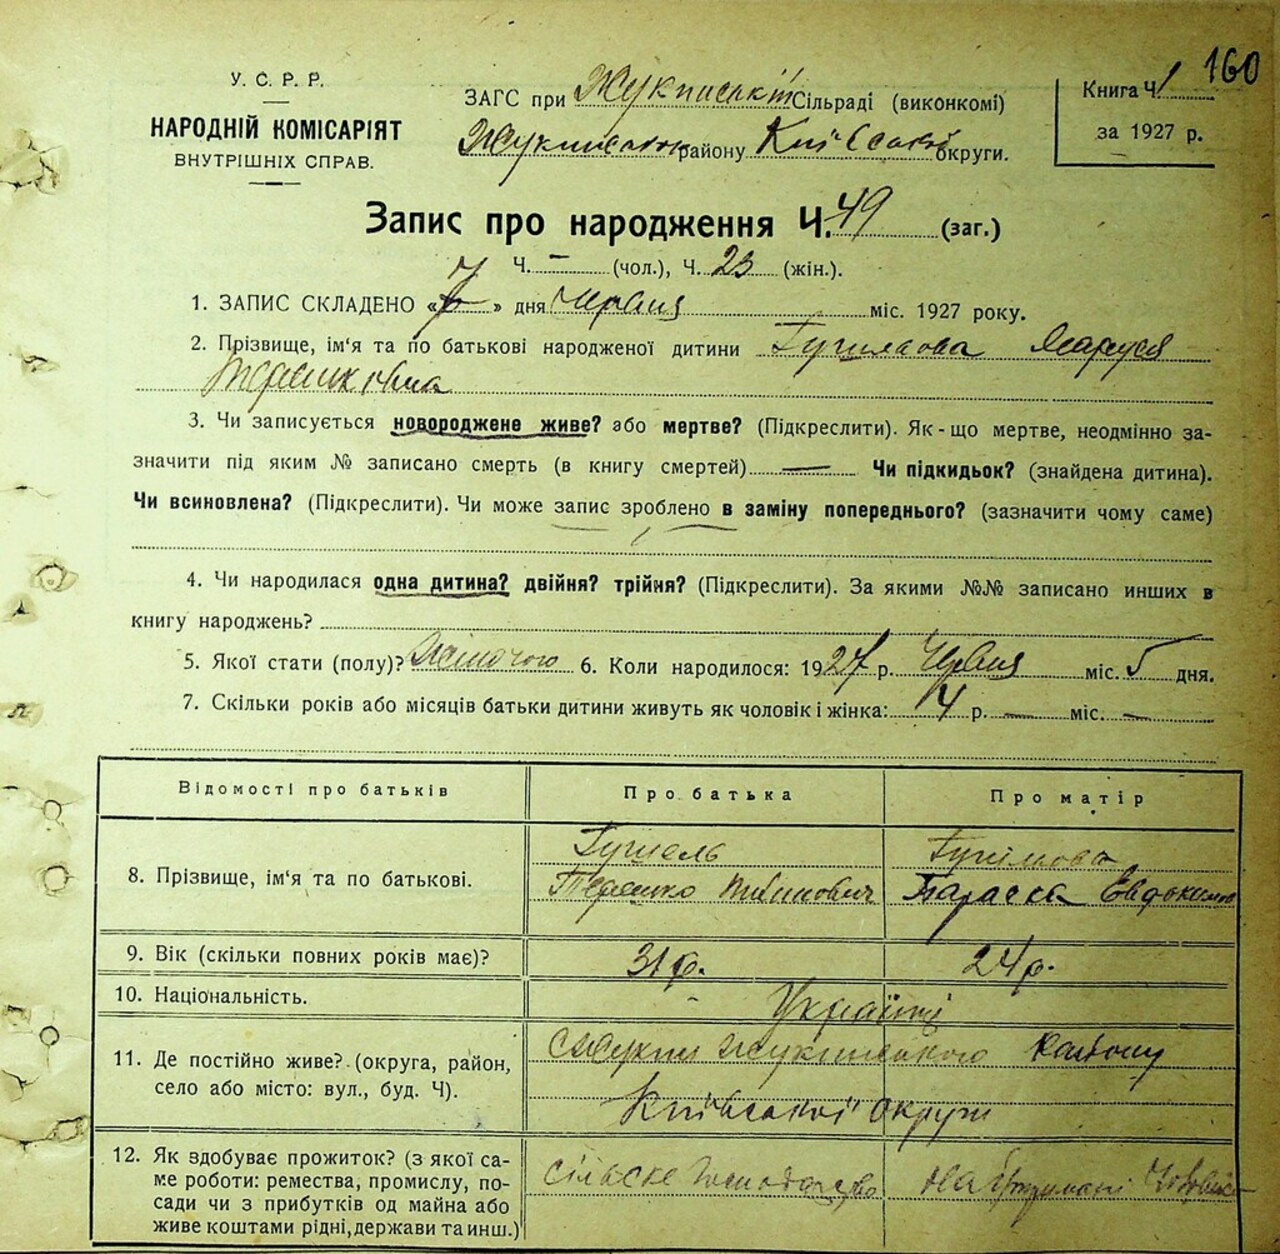 160
У. С. Р. Р.
НАРОДНІЙ КОМІСАРІЯТ
ВНУТРІШНІХ СПРАВ.
ЗАГС при Жукинській Сільраді (виконкомі)
Жукинського району Київської округи.
Книга Ч. 1
за 1927 р.
Запис про народження Ч. 49 (заг.)
Ч. — (чол.), Ч. 23 (жін.).
1. ЗАПИС СКЛАДЕНО «7» дня Червня міс. 1927 року.
2. Прізвище, ім'я та по батькові народженої дитини Маруся
3. Чи записується новороджене живе? або мертве? (Підкреслити). Як-що мертве, неодмінно за-
значити під яким № записано смерть (в книгу смертей) — Чи підкидьок? (знайдена дитина).
Чи всиновлена? (Підкреслити). Чи може запис зроблено в заміну попереднього? (зазначити чому саме)
4. Чи народилася одна дитина? двійня? трійня? (Підкреслити). За якими №№ записано инших в
книгу народжень?
5. Якої стати (полу)? Жіночого 6. Коли народилося: 1927 р. Червня міс. 5 дня.
7. Скільки років або місяців батьки дитини живуть як чоловік і жінка: 4 р. — міс. —
Відомості про батьків Про батька Про матір
8. Прізвище, ім'я та по батькові.
Параска Євдокимов
9. Вік (скільки повних років має)? 31 р. 24 р.
10. Національність. Українці
11. Де постійно живе? (округа, район,
село або місто: вул., буд. Ч).
с Жукин Жукинського району
Київської округи
12. Як здобуває прожиток? (з якої са-
ме роботи: ремества, промислу, по-
сади чи з прибутків од майна або
живе коштами рідні, держави та инш.)
сільске господарство на утриманні